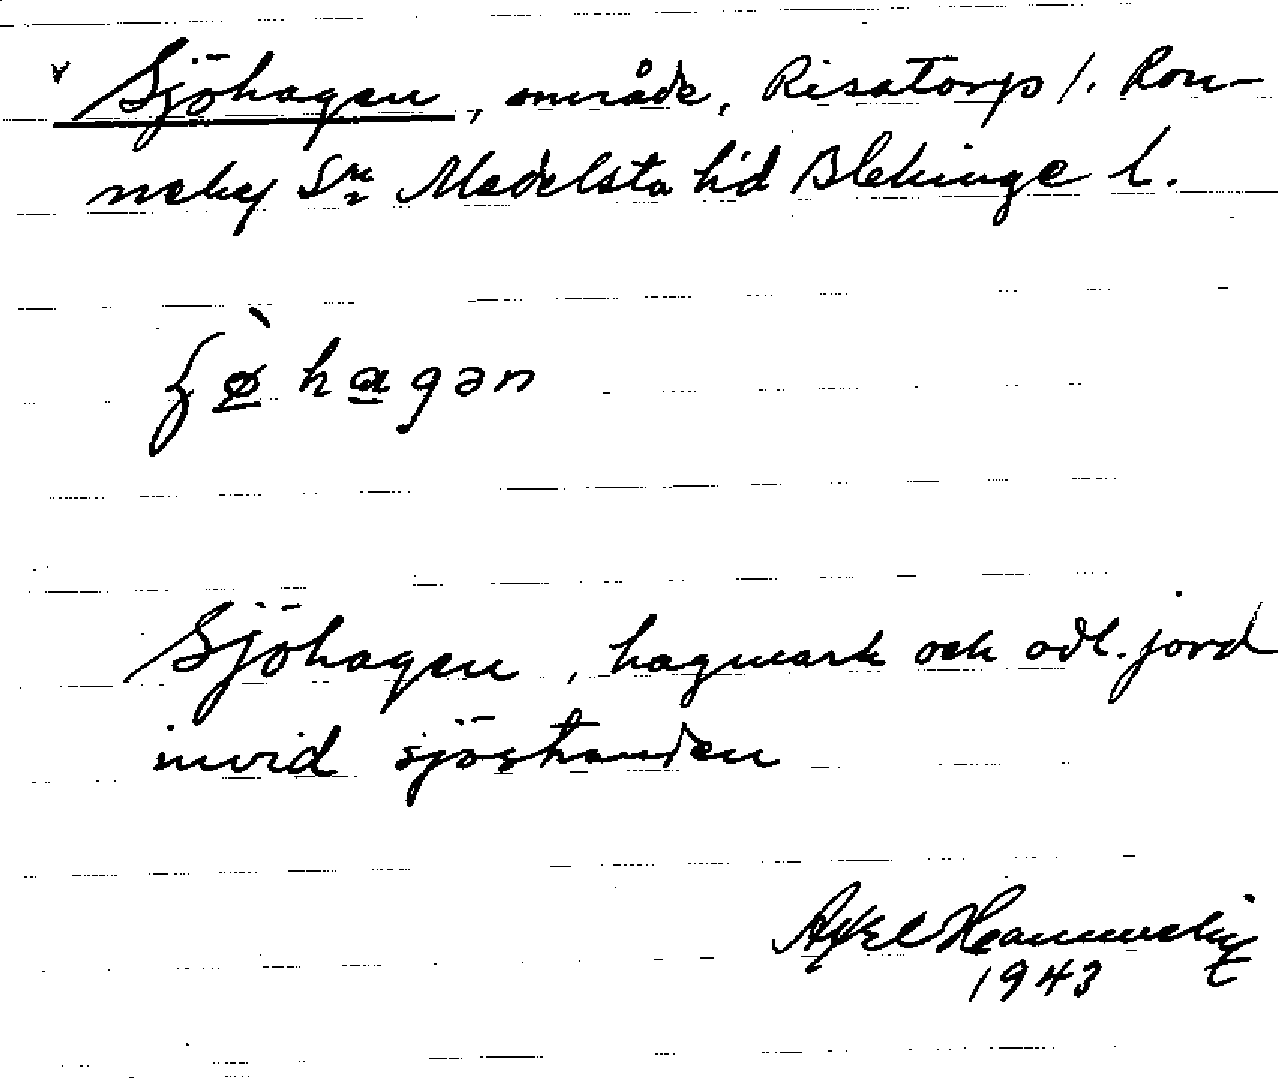 v Sjöhagen, område, Risatorp /. Ron-
neby Sn Medelsta hd Blekinge l.
hagən
Sjöhagen, hagmark och odl. jord
invid sjöstranden
Axel
1943